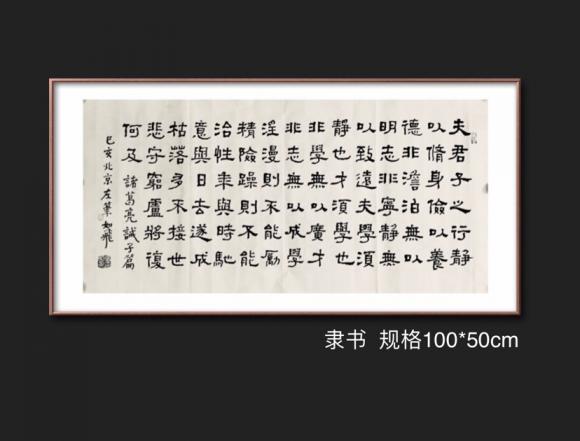 夫君子之行靜
以脩身儉以養
德非澹泊無以
明志非寧靜無
以致遠夫學須
靜也才須學也
非學無以廣才
非志無以成學
淫漫則不能勵
精險躁則不能
治性年與時馳
意與日去遂成
枯落多不接世
悲守窮廬將復
何及 諸葛亮誡子篇
己亥北京左筆如飛
隶书 规格100*50cm